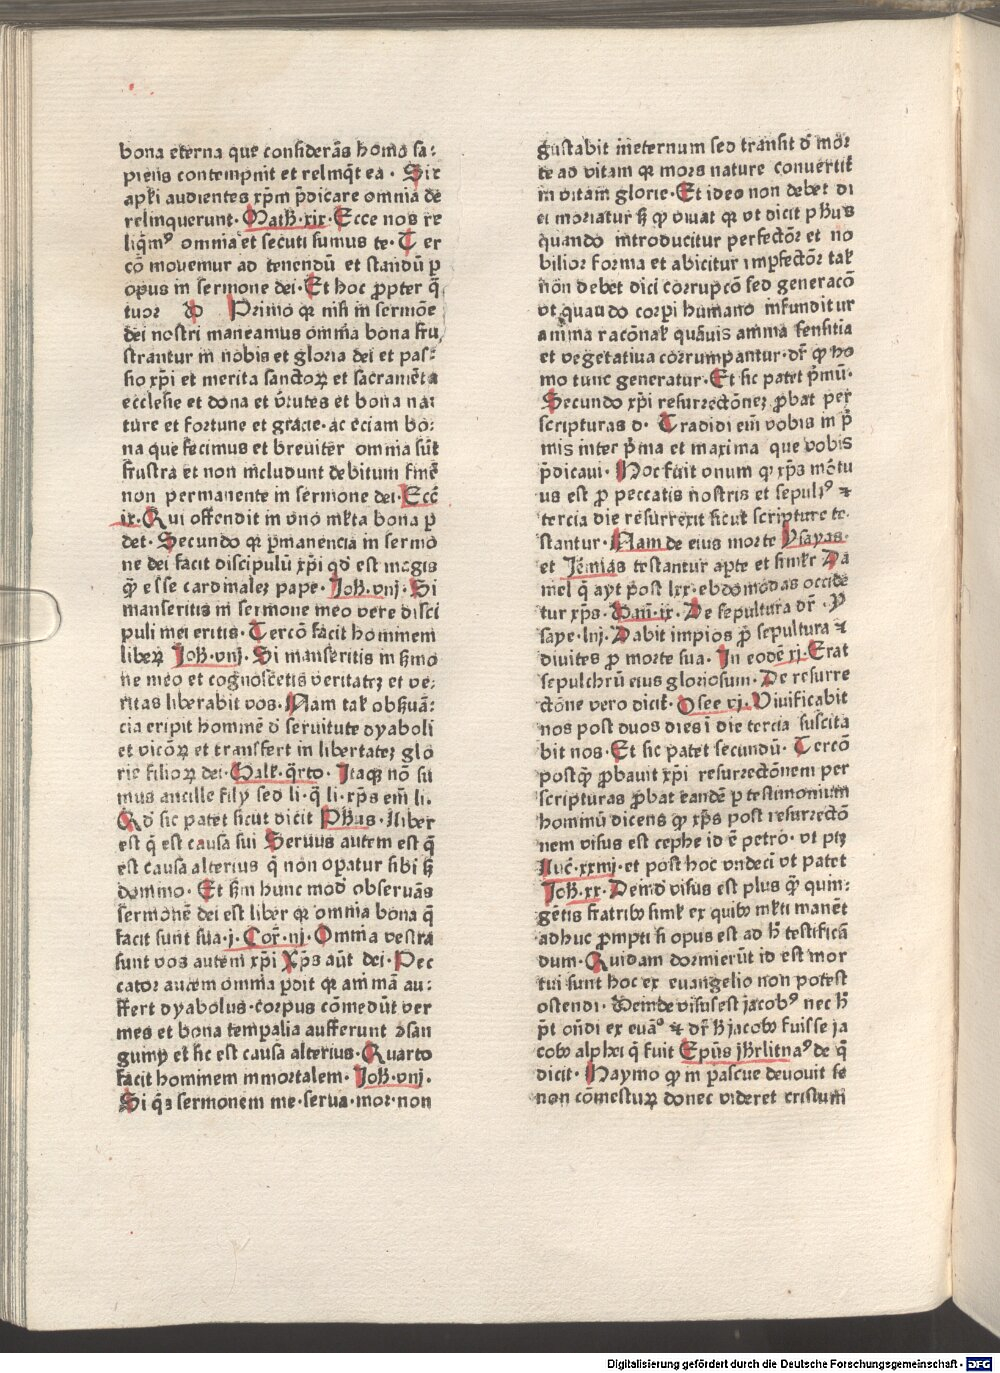 bona eterna que considerãs homo sa⸗
piens contempnit et relinq̃t ea · Sic
apl̃i audientes xp̃m p̃dicare omnia de
relinquerunt · Math · xix · Ecce nos re
liq̃mꝰ omnia et secuti sumus te · Ter
cõ movemur ad tenendũ et standũ p
opus in sermone dei · Et hoc ꝓpter q̃
tuor Primo qr nisi in sermõe
dei nostri maneamus omnia bona fru
strantur in nobis et gloria dei et pas⸗
sio xp̃i et merita sanctoꝝ et sacramẽta
ecclesie et dona et v̾tutes et bona na⸗
ture et fortune et gracie · ac eciam bo⸗
na que fecimus et breviter omnia sũt
frustra et non includunt debitum finẽ
non permanente in sermone dei · Eccẽ
ix · Qui offendit in vno ml̃ta bona p̃
det · Secundo qr p̃manencia in sermo
ne dei facit discipulũ xp̃i qd̃ est magis
q̃ esse cardinalez pape · Joh · viij · Si
manseritis in sermone meo vere disci
puli mei eritis · Tercõ facit hominem
liberꝝ Joh · viij · Si manseritis in s̃mo
ne meo et cognoscetis veritatez et ve⸗
ritas liberabit vos · Nam tal obs̃uã⸗
cia eripit hominẽ d̾ seruitute dyaboli
et vicõꝝ et transfert in libertatez glo
rie filioꝝ dei · Galt · q̃rto · Itaqȝ nõ su
mus ancille filij sed li · q̃ li · xp̃s em̃ li ·
Qd̾ sic patet sicut dicit Phus · liber
est q̃ est causa sui Seruus autem est q̃
est causa alterius q̃ non opatur sibi s̃
domino · Et s̃m hunc mod̾ obseruãs
sermonẽ dei est liber qr omnia bona q̃
facit sunt sua · j · Cor̃ · iij · Omnia vestra
sunt vos autem xp̃i Xp̃s aũt dei · Pec
cator autem omnia p̃dit qr animã au⸗
ffert dyabolus · corpus cõmedũt ver
mes et bona temp̃alia aufferunt ꝯsan
guinij et sic est causa alterius · Quarto
facit hominem inmortalem · Joh · viij ·
Si qs sermonem me · serua · mor · non
gustabit ineternum sed transit d̾ mor
te ad vitam qr mors nature conuertit̃
in vitam glorie · Et ideo non debet di
ci moriatur s̃ qͥ viuat qr vt dicit phus
quando introducitur perfectõr et no
bilior forma et abicitur imperfectõr tal
nõn debet dici corrupcõ sed generacõ
vt quando corpi humano infunditur
anima racõnal quãuis anima sensitia
et vegetatiua corrumpantur · dr̃ qͥ ho
mo tunc generatur · Et sic patet p̃mũ ·
Secundo xp̃i resurrectõnez ꝓbat per
scripturas d · Tradidi em̃ vobis in p̃
mis inter p̃ma et maxima que vobis
p̃dicaui · Hoc fuit vnum qͥ xp̃s mõtu
us est ꝓ peccatis nostris et sepulꝰ ⁊
tercia die resurrexit sicut scripture te
stantur · Nam de eius morte Ysayas ·
et Jer̃emias testantur apte et similr Da
niel q̃ ayt post lxx · ebdomodas occide
tur xp̃s · Dañ · ix · De sepultura dr̃ · Y
saye · liij · Dabit impios ꝓ sepultura ⁊
diuites ꝓ morte sua · In eodẽ xj · Erat
sepulchrũ eius gloriosum · De resurre
ctõne vero dicit · Osee vj · Viuificabit
nos post duos dies ĩ die tercia suscita
bit nos · Et sic patet secundũ · Tercõ
postq̃ ꝓbauit xp̃i resurrectõnem per
scripturas ꝓbat eandẽ p testimonium
hominũ dicens qͥ xp̃s post resurrectõ
nem visus est cephe id ẽ petro · vt ptȝ
Luc̃ · xxiiij · et post hoc vndeci vt patet
Joh · xx · Dein̾d visus est plus q̃ quin⸗
gẽtis fratribꝰ siml̃ ex quibꝰ ml̃ti manẽt
adhuc ꝓmpti si opus est ad h̾ testificã
dum · Quidam dormierũt id est mor
tui sunt hoc ex euangelio non potest
ostendi · Deinde visus est jacobꝰ nec h̾
p̃t oñdi ex euãꝰ ⁊ dr̃ h̾ jacobꝰ fuisse ja
cobꝰ alphei q̃ fuit Ep̃us jhrlitnaꝰ de q̃
dicit · Haymo qͥ in pascue deuouit se
non cõmesturꝝ donec videret cristum
Digitalisierung gefördert durch die Deutsche Forschungsgemeinschaft · DFG